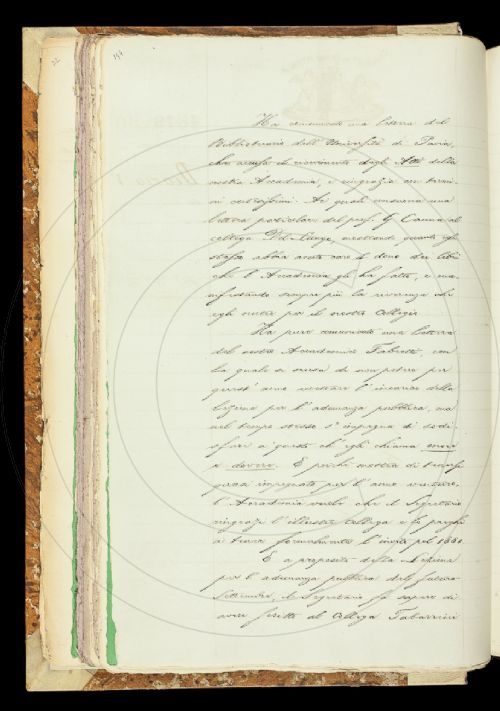 144
Ha comunicato una lettera del
Bibliotecario dell'Università di Pavia,
che accusa il ricevimento degli Atti della
nostra Accademia, e ringrazia con termi-
ni cortesissimi. Ai quali consuona una
lettera particolare del prof. Canna al
collega Del Lungo, mostrando quanto egli
stesso abbia avuto caro il dono dei libri
che l'Accademia gli ha fatto, e ma-
nifestando sempre più la riverenza che
egli nutre per il nostro Collegio.
Ha pure comunicato una lettera
del nostro Accademico Fabretti, con
la quale si scusa di non potere per
quest'anno accettare l'incarico della
lezione per l'adunanza pubblica, ma
nel tempo stesso s'impegna di sodi-
sfare a questo ch'egli chiama onore
e dovere. E poichè mostra di tenersi
quasi impegnato per l'anno venturo,
l'Accademia vuole che il Segretario
ringrazi l'illustre Collega e lo preghi
a tenere formalmente l'invito pel 1880.
E a proposito della Lezione
per l'adunanza pubblica del futuro
Settembre, il Segretario fa sapere di
avere scritto al Collega Tabarrini